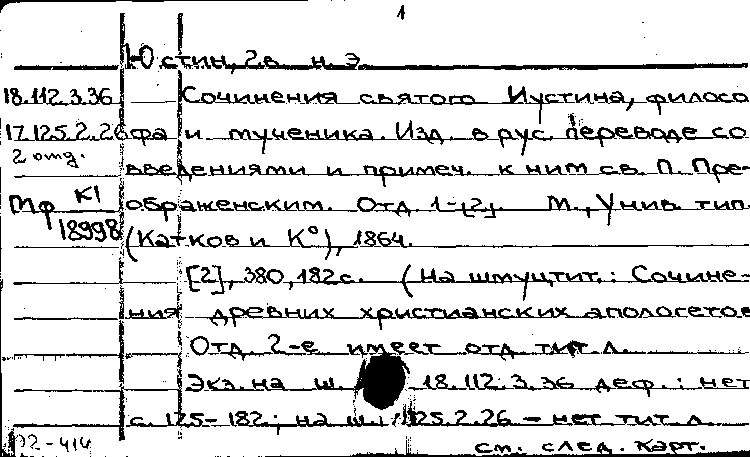 1
Юстин, 2в. н. э.
18.112.3.36 Сочинения святого Иустина, филосо
17.125.2.26 фа и мученика. Изд. в рус. переводе со
2 отд. введениями и примеч. к ним св. П. Пре-
Мф К1/18998 ображенским. Отд. 1-[2]. М., Унив. тип.
(Катков и К°), 1864.
[2], 380, 182 с. (На шмуцтит.: Сочине-
ния древних христианских апологетов
Отд. 2-е имеет отд. тит. л.
Экз. на ш. 18.112.3.36 деф.: нет
с. 125-182; на ш. 17.125.2.26 - нет тит. л.
92-414 см. след. карт.